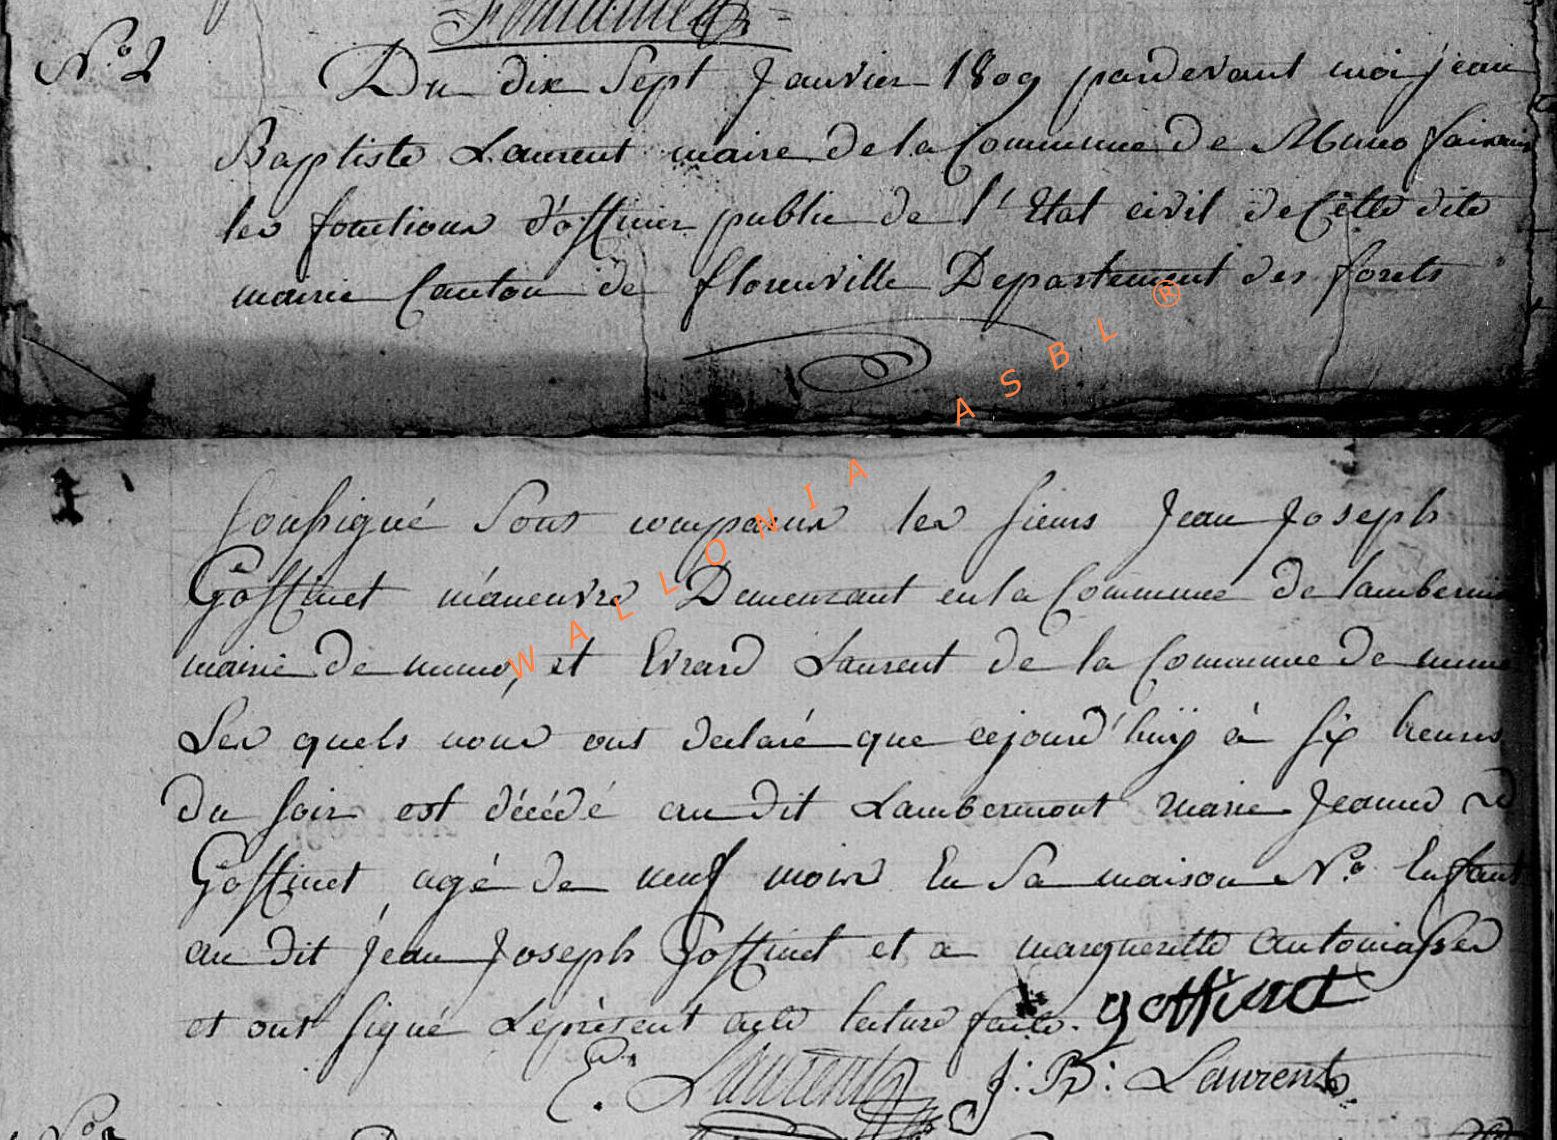 N.º 2
Du dix Sept Janvier 1809 pardevant moi jean
Baptiste Laurent maire de la Commune de Muno faisant
les fonctions d'officier public de l'Etat civil de Cette dite
mairie Canton de florenville Departement des forets
soussigné Sont comparus les sieurs Jean Joseph
Goffinet maneuvre Demeurant en la Commune de lambermont
mairie de muno, et Evrard Laurent de la Commune de muno
Les quels nous ont declaré que cejourd'huÿ à six heures
du soir est décédé au dit Lambermont marie Jeanne
Goffinet agé de neuf mois En Sa maison N.º Enfant
au dit jean Joseph Goffinet et a margueritte
et ont signé Leprésent acte lecture faite. goffinet
E. Laurent J: B: Laurent
WALLONIA ASBL ®